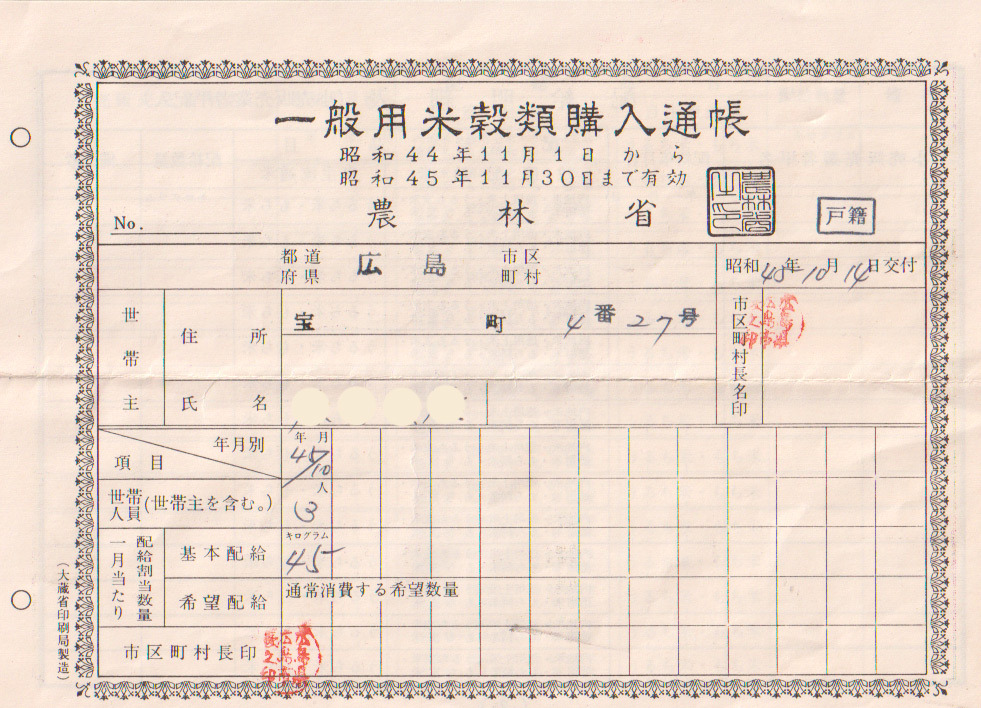 一般用米穀類購入通帳
昭和44年11月1日から
昭和45年11月30日まで有効
農林省
農林省之印
戸籍
No.
都道府県 広島 市区町村
昭和45年10月14日交付
世帯主
住所
宝町 4番27号
市区町村長名印
氏名
年月別
項目
年月
45/10
世帯人員(世帯主を含む。)
人
3
一月当たり配給割当数量
基本配給
キログラム
45
希望配給
通常消費する希望数量
市区町村長印
(大蔵省印刷局製造)